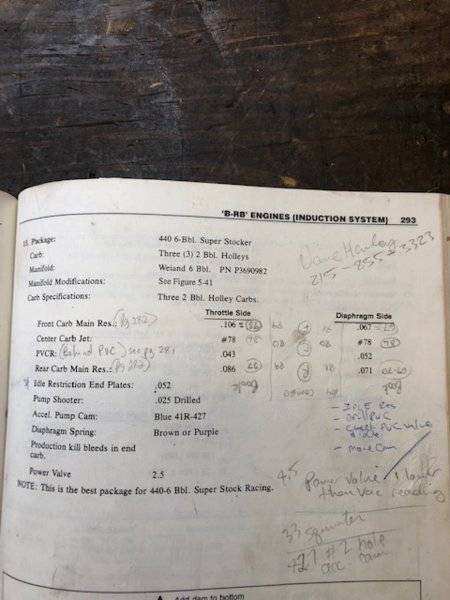 'B-RB' ENGINES (INDUCTION SYSTEM) 293
Package: 440 6-Bbl. Super Stocker
Carb: Three (3) 2 Bbl. Holleys
Manifold: Weiand 6 Bbl. PN P3690982
Manifold Modifications: See Figure 5-41
Carb Specifications: Three 2 Bbl. Holley Carbs.
Throttle Side Diaphragm Side
Front Carb Main Res. .106 .067
Center Carb Jet: #78 #78
PVCR: (Behind PVC) see pg 281 .043 .052
Rear Carb Main Res.: .086 .071
Idle Restriction End Plates: .052
Pump Shooter: .025 Drilled
Accel. Pump Cam: Blue 41R-427
Diaphragm Spring: Brown or Purple
Production kill bleeds in end
carb.
Power Valve 2.5
NOTE: This is the best package for 440-6 Bbl. Super Stock Racing.
- IDLE Res
- Drill PVC
- Check PVC Valve
- more Cam
4.5 Power Valve 1 lower
than Vac reading
33 squirter
427 #2 hole
acc cam
Add dam to bottom